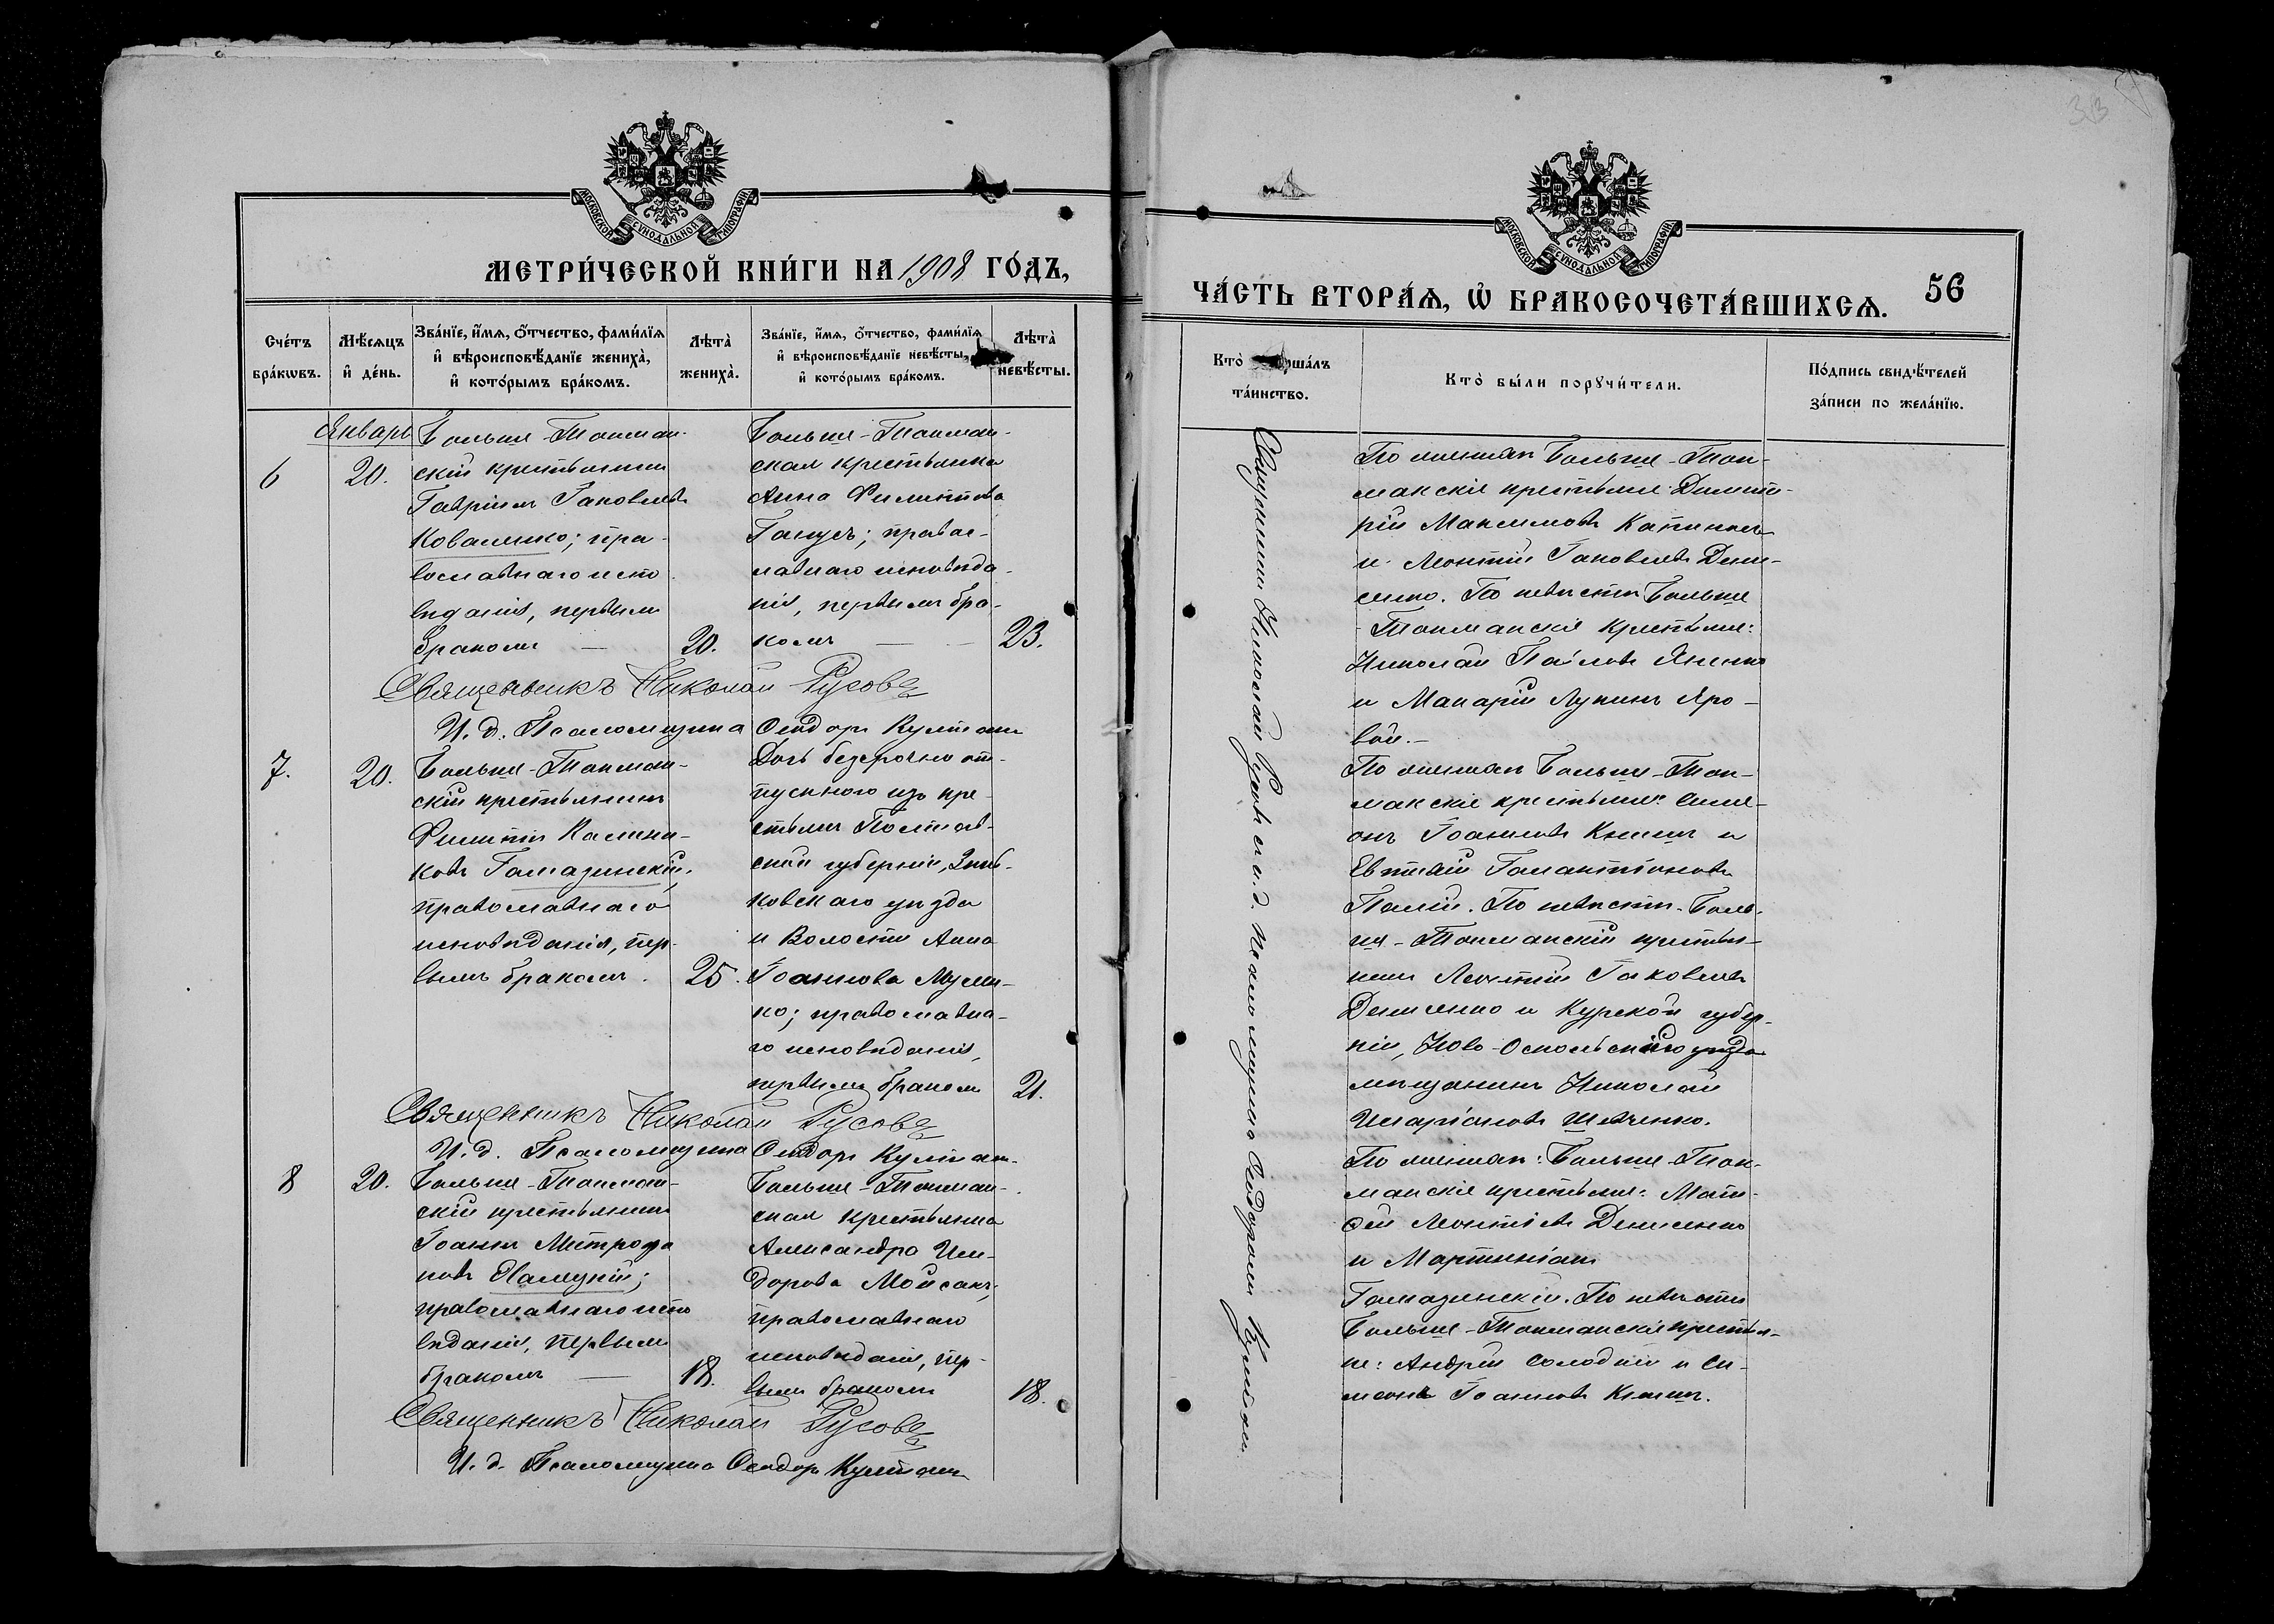 МОСКОВСКОЙ СУНОДАЛЬНОЙ ТИПОГРАФІИ
МЕТРИ́ЧЕСКОЙ КНИ́ГИ НА 1908 ГО́ДЪ,
Сче́тъ бра́кѡвъ.
Мѣ́сяцъ и҆ де́нь.
Зва́нїе, и҆́мѧ, ѻ҆́тчество, фами́лїѧ
и҆ вѣроисповѣ́данїе жениха̀,
и҆ кото́рымъ бра́комъ.
Лѣта̀ жениха̀.
Зва́нїе, и҆́мѧ, ѻ҆́тчество, фами́лїѧ
и҆ вѣроисповѣ́данїе невѣ́сты,
и҆ кото́рымъ бра́комъ.
Лѣта̀ невѣ́сты.
Январь
6
20.
Больше-Токмак-
скій крестьянинъ
Гавріилъ Іаковлевъ
Коваленко; пра-
вославнаго испо
вѣданія, первымъ
бракомъ —
20.
Больше-Токмак-
ская крестьянка
Анна Филиппова
Гануся; правос-
лавнаго исповѣда-
нія, первымъ бра-
комъ —
23.
Священникъ Николай Русовъ
И. д. Псаломщика Ѳеодоръ Култ
7.
20.
Больше-Токмак-
скій крестьянинъ
Филиппъ Калини-
ковъ Гамазинскій,
православнаго
исповѣданія, пер-
вымъ бракомъ.
25.
Дочь безсрочно от-
пускного изъ кре-
стьянъ Полтав-
ской губерніи, Зинь-
ковскаго уѣзда
и Волости Анна
Іоаннова Мусіен-
ко; православна-
го исповѣданія,
первымъ бракомъ
21.
Священникъ Николай Русовъ
И. д. Псаломщика Ѳеодоръ
8
20.
Больше-Токмак-
скій крестьянинъ
Іоаннъ Митрофа
новъ Халецкій;
православнаго испо
вѣданія, первымъ
бракомъ —
18.
Больше-Токмак-
ская крестьянка
Александра Иси-
дорова Мойсакъ,
православнаго
исповѣданія, пер-
вымъ бракомъ
18.
Священникъ Николай Русовъ
И. д. Псаломщика Ѳеодоръ
33
МОСКОВСКОЙ СУНОДАЛЬНОЙ ТИПОГРАФІИ
ЧА́СТЬ ВТОРА́Ѧ, Ѡ҆ БРАКОСОЧЕТА́ВШИХСѦ.
56
Кто̀ ша́лъ
та́инство.
Кто̀ бы́ли порꙋчи́тели.
По́дпись свидѣ́телей
за́писи по жела́нїю.
Священникъ Николай Русовъ съ и. д. псаломщика Ѳеодоромъ
По женихѣ Больше-Ток-
макскіе крестьяне Димит-
рій Максимовъ
и Леонтій Іаковлевъ Дени-
сенко. По невѣстѣ Больше
-Токмакскіе крестьяне:
Николай Павловъ Яненко
и Макарій Лукинъ Яро-
вой.—
По женихѣ Больше-Ток-
макскіе крестьяне: Симе-
онъ Іоанновъ Книшъ и
Евтихій Галактіоновъ
Палій. По невѣстѣ-Боль-
ше-Токмакскій крестья-
нинъ Леонтій Іаковлевъ
Денисенко и Курской губер-
ніи, Ново-Оскольскаго уѣзда
мѣщанинъ Николай
Иларіоновъ Шевченко.
По женихѣ: Больше-Ток-
макскіе крестьяне: Мат-
ѳей Леонтіевъ Денисенко
и Мартиніанъ
Гамазинскій. По невѣстѣ
Больше-Токмакскіе крестья-
не: Андрей Солодкій и Си-
меонъ Іоанновъ Книшъ.